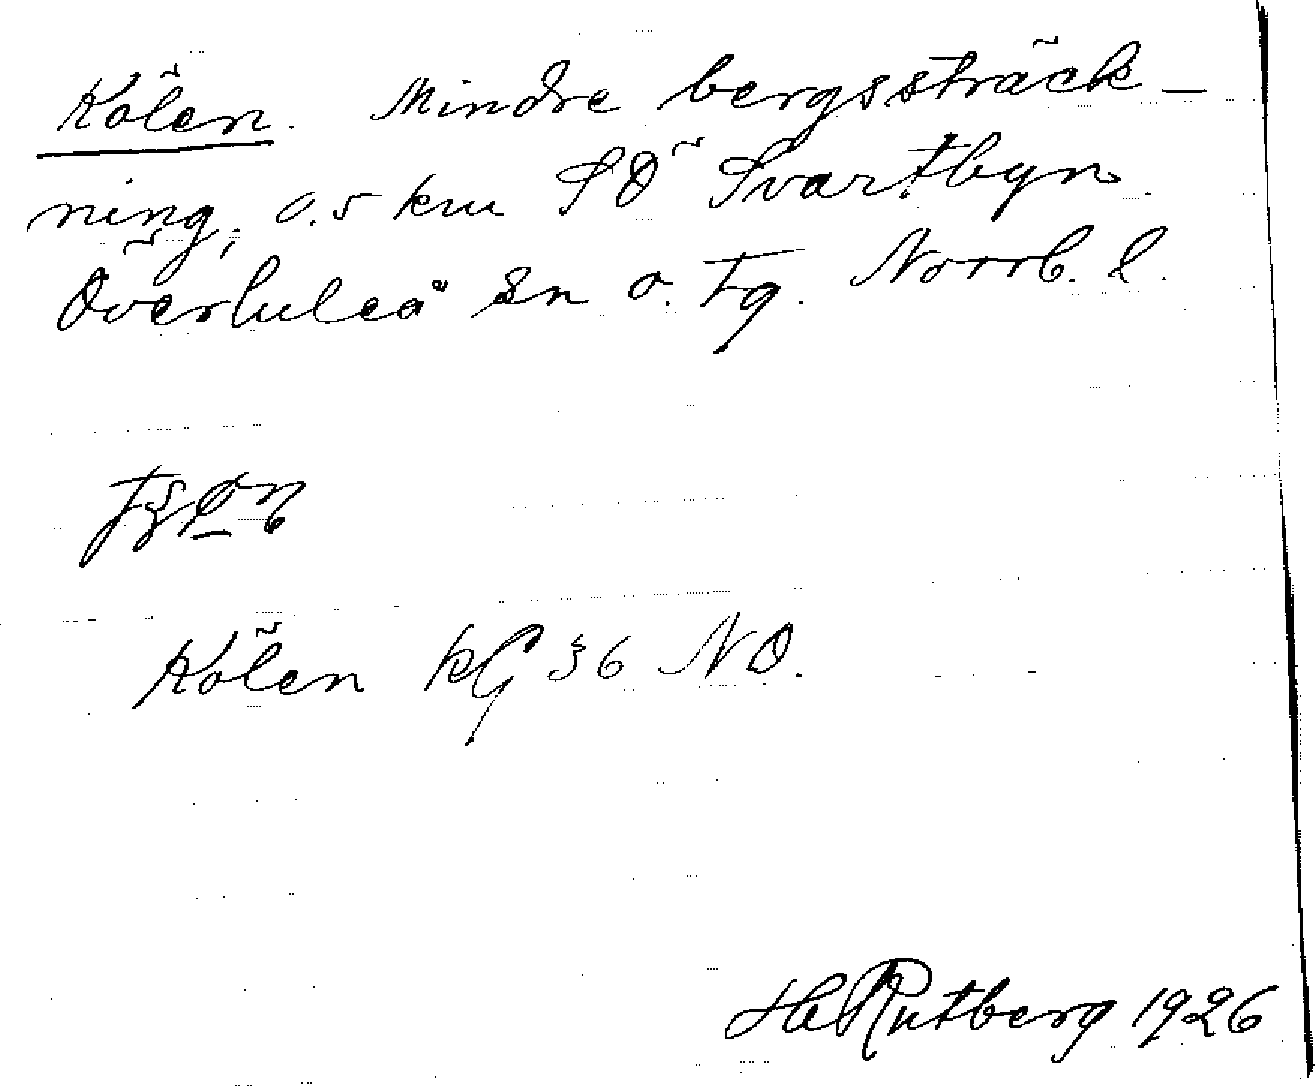 Kölen. Mindre bergssträck-
ning, 0.5 km SÖ Svartbyn
Överluleå sn o. Tg. Norrb. l.
Kölen kG 36 NO.
H Rutberg 1926